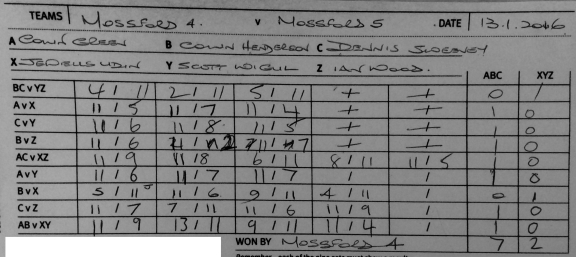 TEAMS Mossford 4. v Mossford 5 .DATE 13.1.2016
A Colin Green B Colin Henderson C Dennis Sweeney
X Y Scott Z Ian Wood.
ABC XYZ
BC v YZ 4 / 11 2 / 11 5 / 11 + + 0 1
A v X 11 / 5 11 / 7 11 / 4 + + 1 0
C v Y 11 / 6 11 / 8 11 / 5 + + 1 0
B v Z 11 / 6 + + 1 0
AC v XZ 11 / 9 11 / 8 6 / 11 8 / 11 11 / 5 1 0
A v Y 11 / 6 11 / 7 11 / 7 / / 1 0
B v X 5 / 11 11 / 6 9 / 11 4 / 11 / 0 1
C v Z 11 / 7 7 / 11 11 / 6 11 / 9 / 1 0
AB v XY 11 / 9 13 / 11 9 / 11 11 / 4 / 1 0
WON BY Mossford 4 7 2